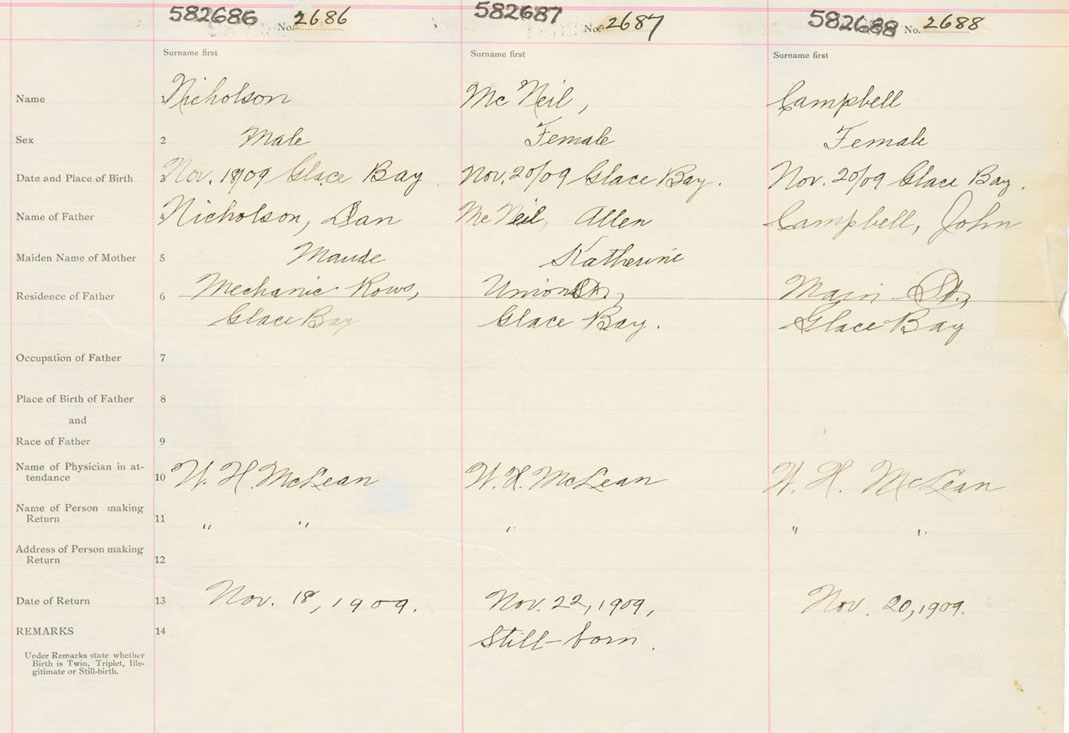 582686 No. 2686 582687 No. 2687 582688 No. 2688
Surname first Surname first Surname first
Name Nicholson Mc Neil, Campbell
Sex 2 Male Female Female
Date and Place of Birth 3 Nov. 18/09 Glace Bay Nov. 20/09 Glace Bay. Nov. 20/09 Glace Bay.
Name of Father Nicholson, Dan Mc Neil, Allen Campbell, John
Maiden Name of Mother 5 Maude Katherine
Residence of Father 6 Mechanic Rows, Union St., Main St.,
Glace Bay Glace Bay. Glace Bay
Occupation of Father 7
Place of Birth of Father 8
and
Race of Father 9
Name of Physician in at-
tendance 10 W. H McLean W. H. McLean W. H. McLean
Name of Person making
Return 11 " " " " "
Address of Person making
Return 12
Date of Return 13 Nov. 18, 1909. Nov. 22, 1909, Nov. 20, 1909.
REMARKS 14 Still-born.
Under Remarks state whether
Birth is Twin, Triplet, Ille-
gitimate or Still-birth.